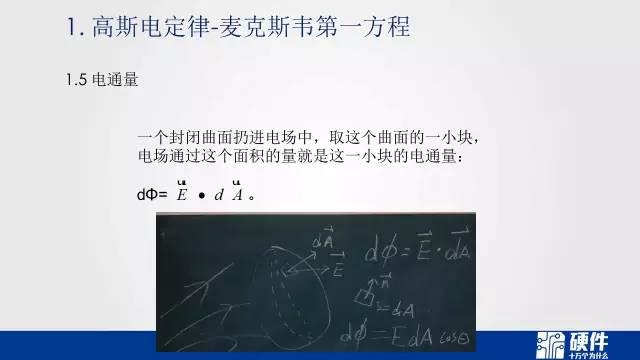 1. 高斯电定律-麦克斯韦第一方程
1.5 电通量
一个封闭曲面扔进电场中，取这个曲面的一小块，
电场通过这个面积的量就是这一小块的电通量：
dΦ= E • d A 。
dA
E
dϕ = E · dA
n
s=dA
dϕ = E dA cosθ
硬件
十万个为什么